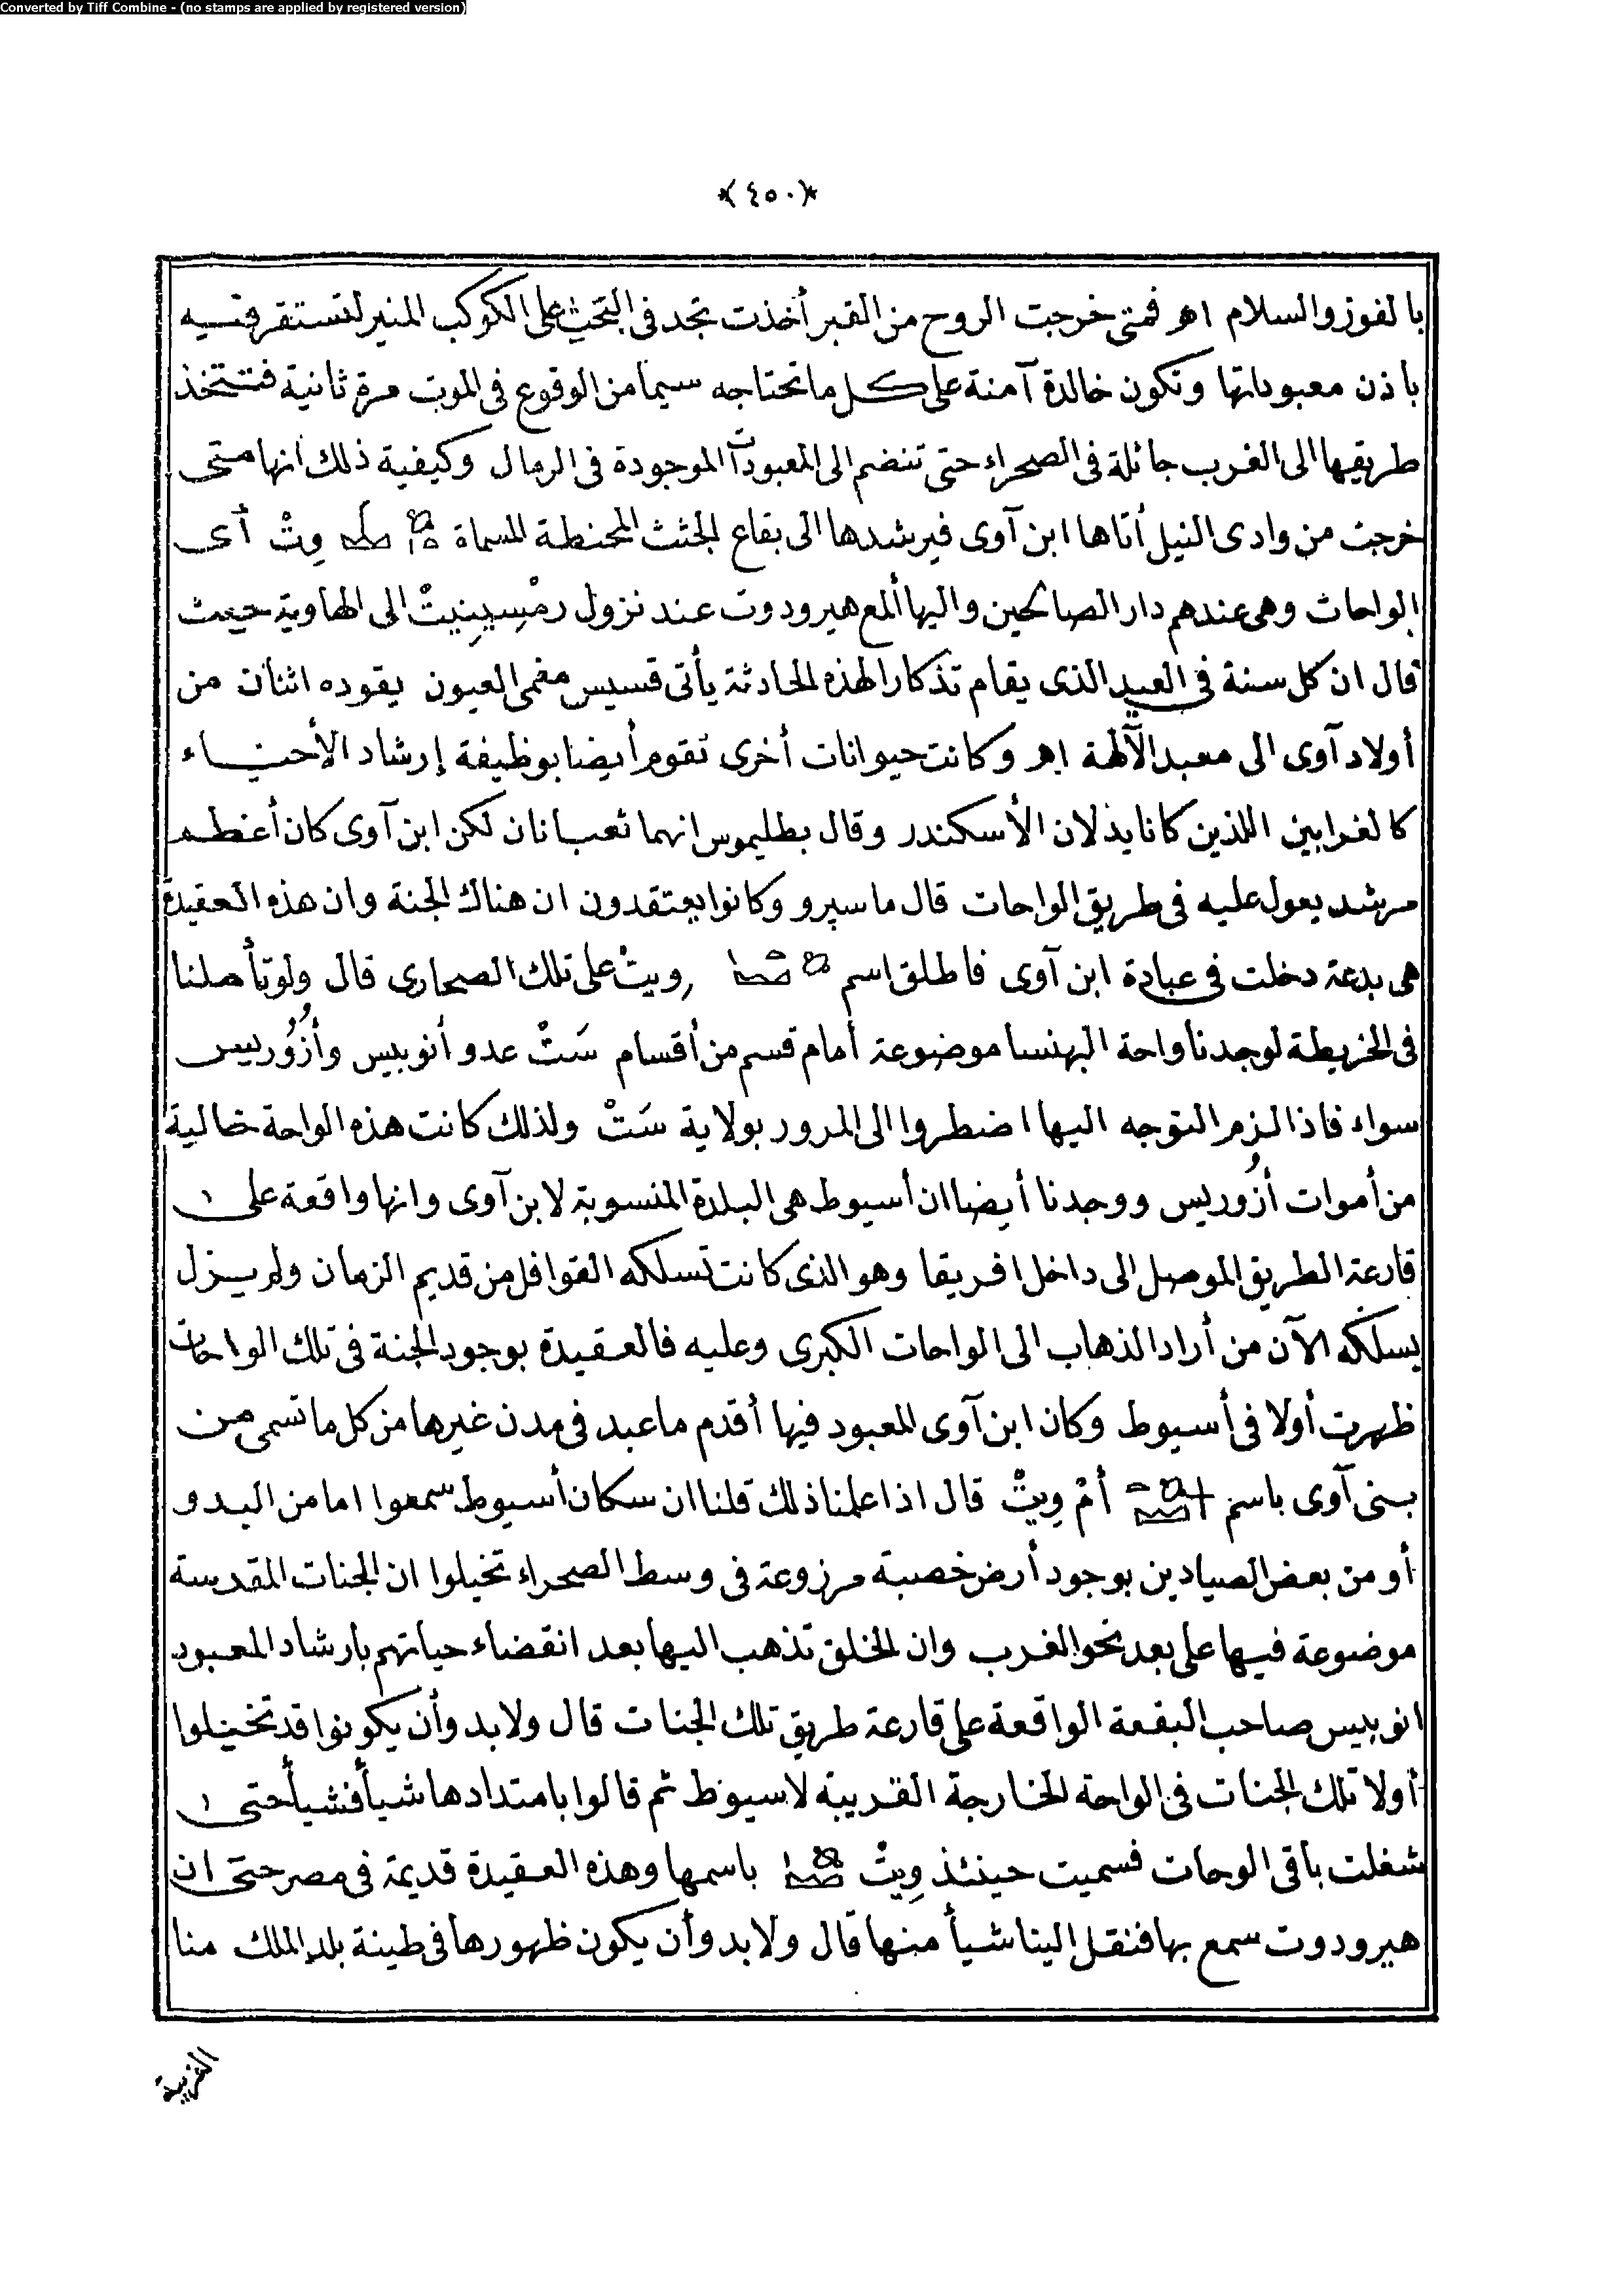 Converted by Tiff Combine - (no stamps are applied by registered version)
*(٤٥٠)*
بالفوز والسلام اهـ فمتى خرجت الروح من القبر أخذت تجد فى البحث على الكوكب المنير لتستقر فيه
باذن معبوداتها وتكون خالدة آمنة على كل ما تحتاجه سيما من الوقوع فى الموت مرة ثانية فتتخذ
طريقها الى الغرب جائلة فى الصحراء حتى تنضم الى المعبودات الموجودة فى الرمال وكيفية ذلك انها متى
خرجت من وادى النيل أتاها ابن آوى فيرشدها الى بقاع الجثث المحنطة المسماة وِيتْ أى
الواحات وهى عندهم دار الصالحين واليها ألمع هيرودوت عند نزول رمْسِينِيتْ الى الهاوية حيث
قال ان كل سنة فى العيد الذى يقام تذكارا لهذه الحادثة يأتى قسيس مغمى العيون يقوده اثنان من
أولاد آوى الى معبد الآلهة اهـ وكانت حيوانات أخرى تقوم أيضا بوظيفة إرشاد الأحياء
كالغرابين اللذين كانا يدلان الأسكندر وقال بطليموس انهما ثعبانان لكن ابن آوى كان أعظم
مرشد يعول عليه فى طريق الواحات قال ماسپرو وكانوا يعتقدون ان هناك الجنة وان هذه العقيدة
هى بدعة دخلت فى عبادة ابن آوى فاطلق اسم ويتْ على تلك الصحارى قال ولو تأملنا
فى الخريطة لوجدنا واحة البهنسا موضوعة أمام قسم من أقسام سَتْ عدو أنوبيس وأزُوريس
سواء فاذا لزم التوجه اليها اضطروا الى المرور بولاية سَتْ ولذلك كانت هذه الواحة خالية
من أموات أزُوريس ووجدنا أيضا ان أسيوط هى البلدة المنسوبة لابن آوى وانها واقعة على
قارعة الطريق الموصل الى داخل افريقا وهو الذى كانت تسلكه القوافل من قديم الزمان ولم يزل
يسلكه الآن من أراد الذهاب الى الواحات الكبرى وعليه فالعقيدة بوجود الجنة فى تلك الواحات
ظهرت أولا فى أسيوط وكان ابن آوى المعبود فيها أقدم ما عبد فى مدن غيرها من كل ما تسمى من
بنى آوى باسم أمْ وِيتْ قال اذا علمنا ذلك قلنا ان سكان أسيوط سمعوا اما من البدو
أو من بعض الصيادين بوجود أرض خصبة مزروعة فى وسط الصحراء تخيلوا ان الجنات المقدسة
موضوعة فيها على بعد نحو الغرب وان الخلق تذهب اليها بعد انقضاء حياتهم بارشاد المعبود
انوبيس صاحب البقعة الواقعة على قارعة طريق تلك الجنات قال ولابد وأن يكونوا قد تخيلوا
أولا تلك الجنات فى الواحة الخارجة القريبة لاسيوط ثم قالوا بامتدادها شيأ فشيأ حتى
شغلت باقى الوحات فسميت حينئذ وِيتْ باسمها وهذه العقيدة قديمة فى مصر حتى ان
هيرودوت سمع بها فنقل الينا شيأ منها قال ولابد وأن يكون ظهورها فى طينة بلد الملك منا
الغربية